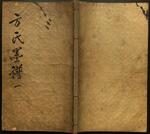 方氏墨譜一